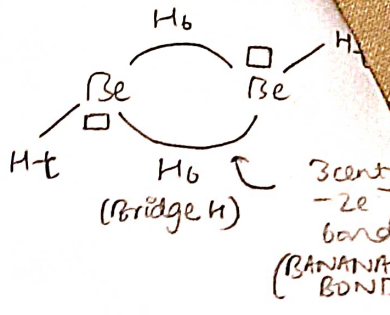 Hb
Be
Be
H-t
Hb
(Bridge H)
3cent
-2e-
bond
(BANANA
BOND